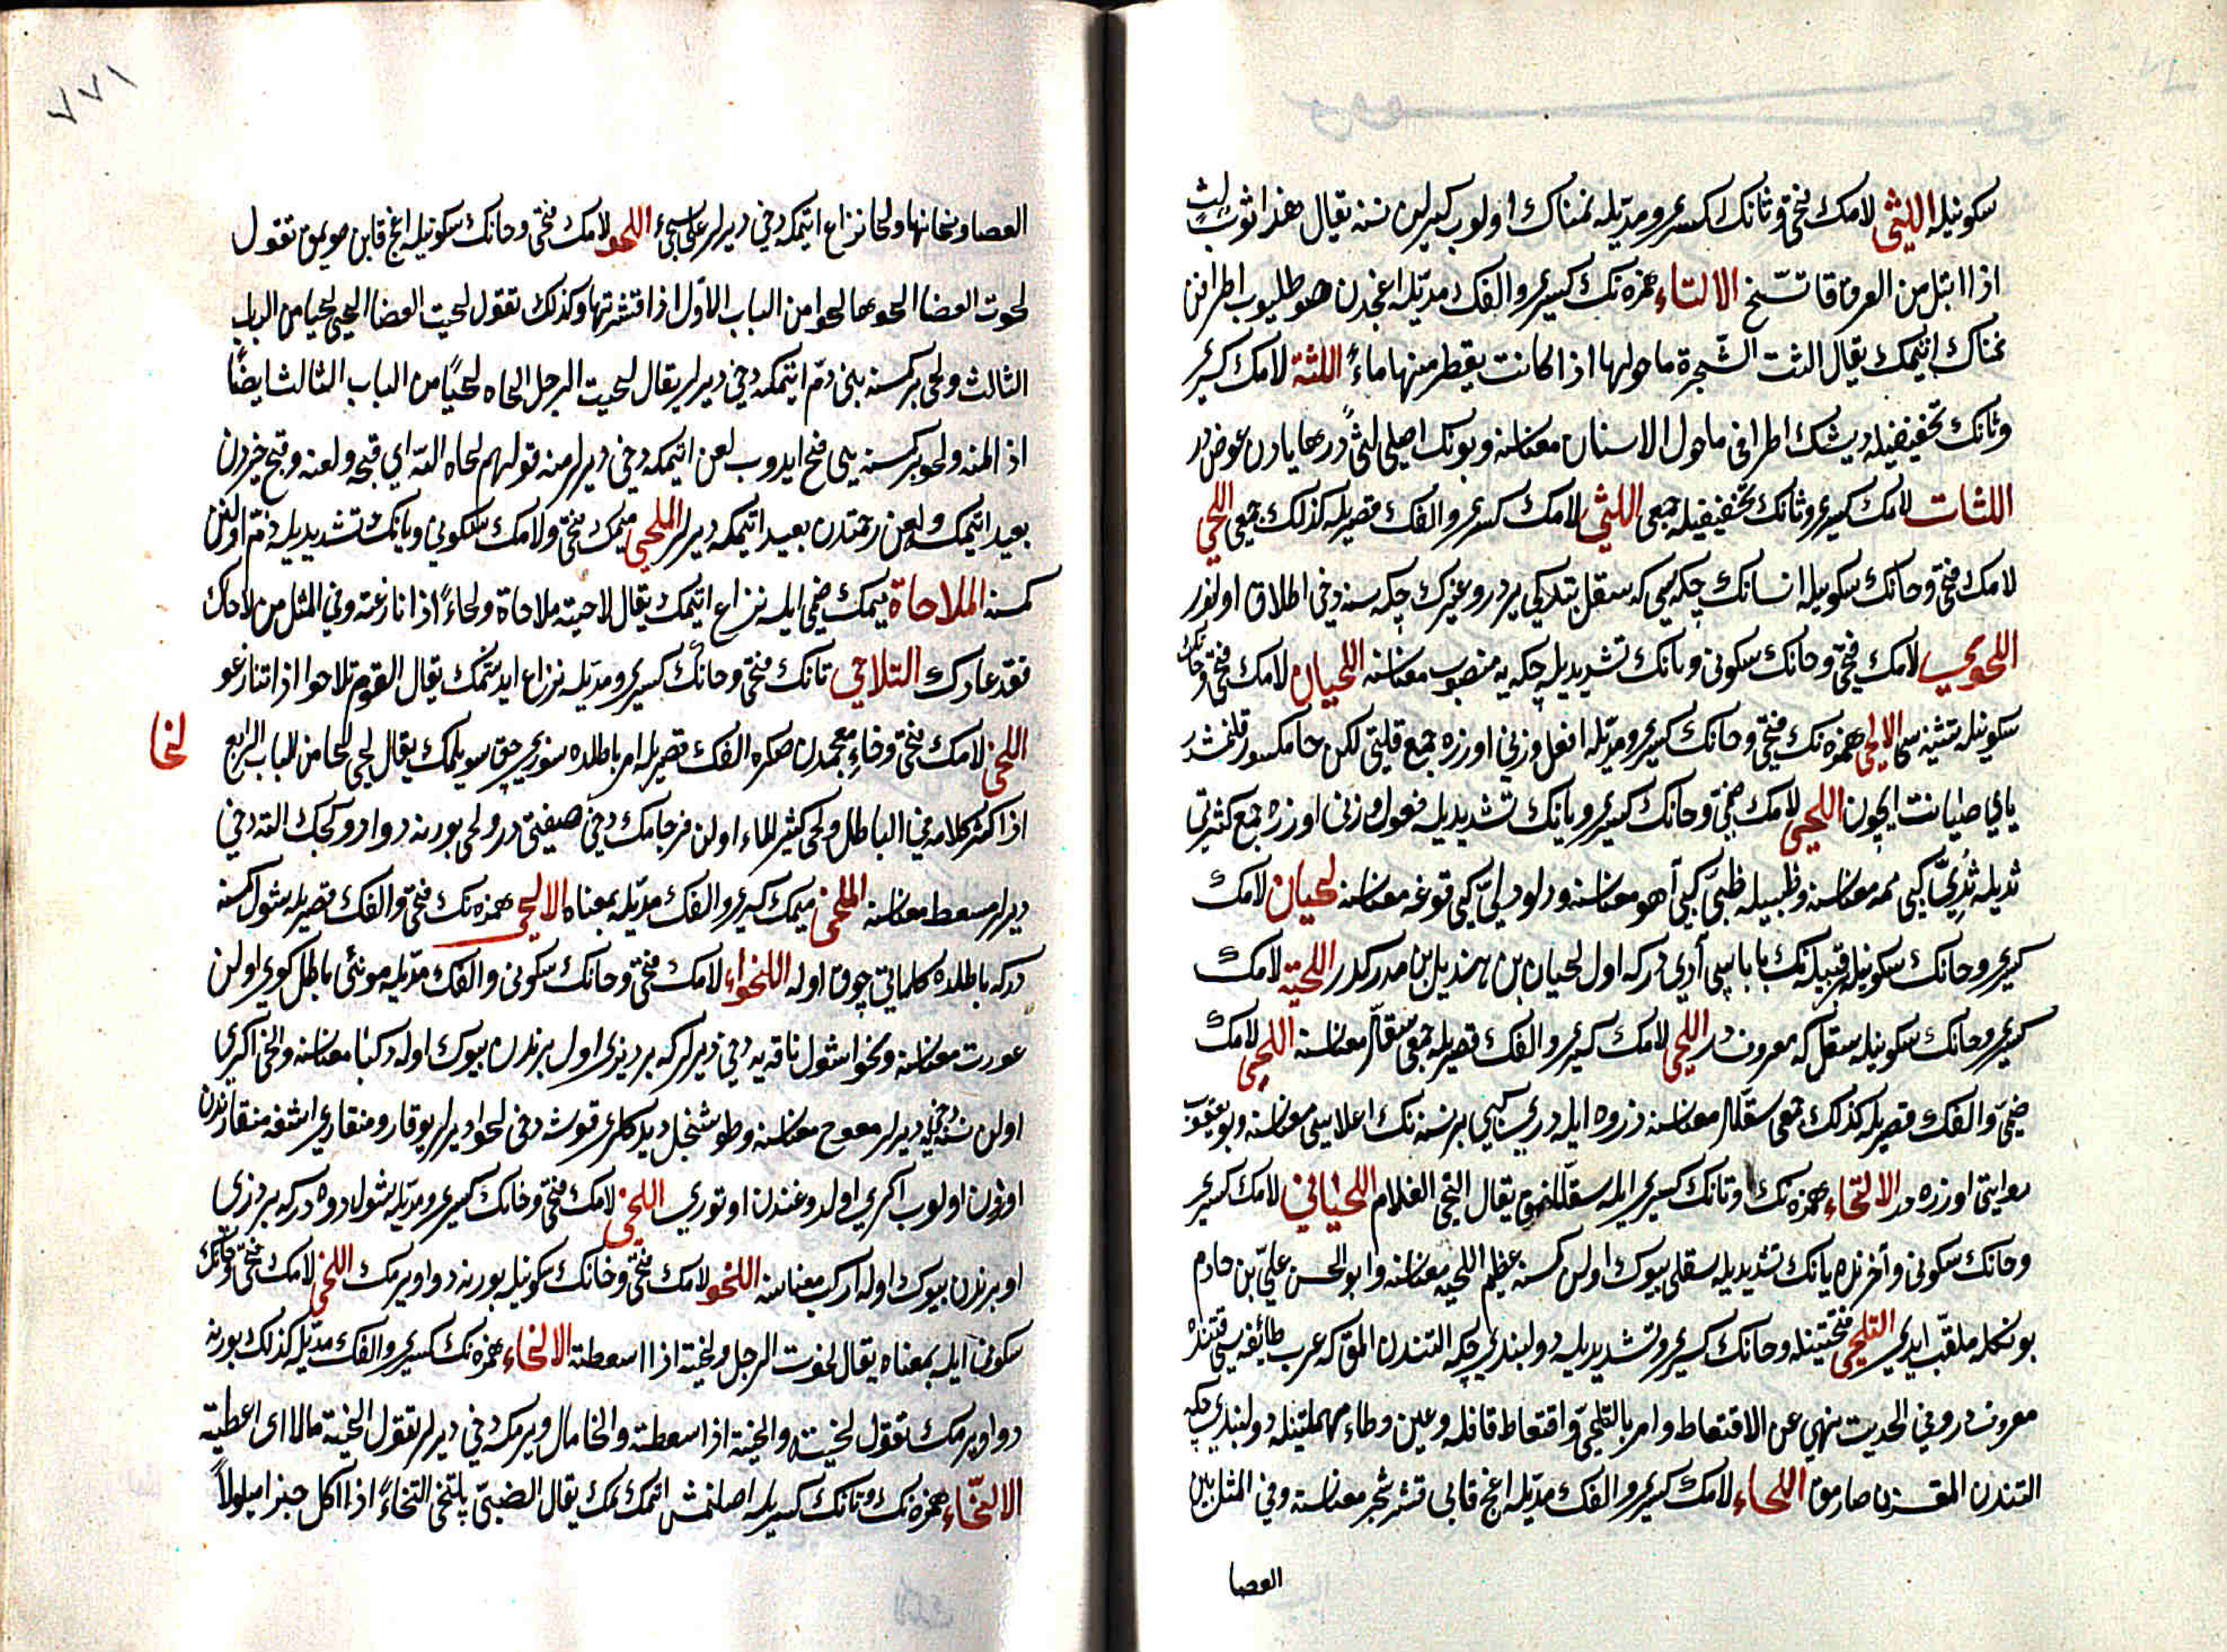 سكونيله اللثى لامك فتحى وثانك كسرى ومديله نمناك اولوب كيرلين نسنه يقال هذا ثوب لثٍ
اذا ابتل من العرق قا تسخ الالثاء همزه نك كسرى والفك مديله اغجدن صو طلوب اطرافن
نمناك ايتمك يقال الثت الشجرة ماحولها اذا كانت يقطر منها ماءً اللثة لامك كسرى
وثانك تخفيفيله ديشك اطرافى ماحول الاسنان معناسنه وبونك اصلى لثىٌ در ها يادن عوض در
اللثات لامك كسرى وثانك تخفيفيله جمعى اللثى لامك كسرى والفك قصريله كذلك جمعى اللحى
لامك فتحى وحانك سكونيله انسانك چكه سى كه سقل بتدكى يردر وغيرك چكه سنه دخى اطلاق اولنور
اللحوى لامك فتحى وحانك سكونى ويانك تشديديله چكه يه منصوب معناسنه اللحيان لامك فتحى وحانك
سكونيله تثنيه سى الالحى همزه نك فتحى وحانك كسرى ومديله افعل وزنى اوزره جمع قلتى لكن حا مكسور قلنمشدر
يائى صيانت ايچون اللحى لامك ضمى وحانك كسرى ويانك تشديديله فعول وزنى اوزره جمع كثرتى
ثديله ثدى كبى ممه معناسنه وظبيله ظبى كبى آهو معناسنه ودلو دلى كبى قوغه معناسنه لحيان لامك
كسرى وحانك سكونيله قبيله نك باباسى آدى در كه اول لحيان بن هذيل بن مدركه در اللحية لامك
كسرى وحانك سكونيله سقل كه معروفدر اللحى لامك كسرى والفك قصريله جمعى سقللر معناسنه اللحى لامك
ضمى والفك قصريله كذلك جمعى سقللر معناسنه ذروه ايله ذرى كبى بر نسنه نك اعلاسى معناسنه وبو يعقوب
روايتى اوزره در الالتحاء همزه نك وتانك كسرى ايله سقللنمق يقال التحى الغلام اللحيانى لامك كسرى
وحانك سكونى وآخرنده يانك تشديديله سقلى بيوك اولن كسنه عظيم اللحيه معناسنه وابو الحسن على بن حازم
بونكله ملقب ايدى التلحى فتحتينله وحانك كسرى وتشديديله دولبندى چكه التندن المق كه عرب طائفه سى قتنده
معروفدر وفى الحديث نهى عن الاقتعاط وامر بالتلحى واقتعاط قافله وعين وطاء مهملتينله دولبندى چكه
التندن المقسزن صارمق اللحاء لامك كسرى والفك مديله اغج قابى قشر شجر معناسنه وفى المثل بين
العصا
العصا ولحائها ولحا نزاع ايتمكه دخى ديرلر على ما سيجىء اللحو لامك فتحى وحانك سكونيله اغج قابن صويمق تقول
لحوت العصا الحوها لحوا من الباب الاول اذا قشرتها وكذلك تقول لحيت العصا الحى لحيا من الباب
الثالث ولحى بر كسنه يى ذم ايتمكه دخى ديرلر يقال لحيت الرجل الحاه لحيًا من الباب الثالث ايضًا
اذ المنه ولحو بر كسنه يى قبح ايدوب لعن ايتمكه دخى ديرلر منه قولهم لحاه الله اى قبحه ولعنه وقبح خيردن
بعيد ايتمك ولعن رحمتدن بعيد ايتمكه ديرلر الملحى ميمك فتحى ولامك سكونى ويانك تشديديله ذم اولنن
كمسنه الملاحاة ميمك ضمى ايله نزاع ايتمك يقال لاحيته ملاحاة ولحاءً اذا نازعته وفى المثل من لاحاك
فقد عاداك التلاحى تانك فتحى وحانك كسرى ومديله نزاع ايدشمك يقال القوم تلاحوا اذا تنازعو
لخا
اللخى لامك فتحى وخاء معجمه دن صكره الفك قصريله امر باطلده سوزى چق سويلمك يقال لخى لخا من الباب الرابع
اذا كثر كلامه فى الباطل ولخى كثير الماء اولن فرجه دخى صيفتى در ولخى بورنه دوا دوكجك الته دخى
ديرلر مسعط معناسنه الملخى ميمك كسرى والفك مديله بمعناه الالخى همزه نك فتحى والفك قصريله شول كمسنه
دركه باطلده كلماتى چوق اوله اللخواء لامك فتحى وخانك سكونى والفك مديله مونثى باطل كوى اولن
عورت معناسنه ولخوا شول ناقه يه دخى ديرلر كه بر ديزى اول برندن بيوك اوله ركبا معناسنه والخى اكرى
اولن نسنه يه دخى ديرلر معوج معناسنه وطوشنجل ديدكلرى قوشه دخى لخوا ديرلر يوقارو منقارى اشغه منقارندن
اوزون اولوب اكرى اولدوغندن اوتورى اللخى لامك فتحى وخانك كسرى ومديله شول دوه در كه بر ديزى
او برندن بيوك اوله اركب معناسنه اللخو لامك فتحى وخانك سكونيله بورنه دوا ويرمك اللخى لامك فتحى وخانك
سكونى ايله بمعناه يقال لخوت الرجل ولخيته اذا اسعطته الالخاء همزه نك كسرى والفك مديله كذلك بورنه
دوا ويرمك تقول لخيته والخيته اذا سعطته والخا مال ويرمكه دخى ديرلر تقول الخيته مالا اى اعطيته
الالتخاء همزه نك وتانك كسريله اصلنمش اتمك يمك يقال الصبى يلتخى التخاءً اذا اكل خبزا مبلولاً